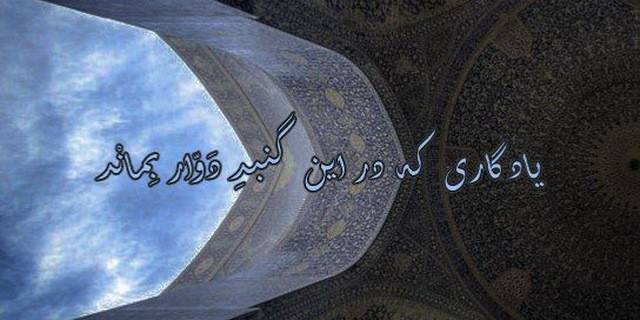 یادگاری که در این گنبدِ دَوّار بِمانْد